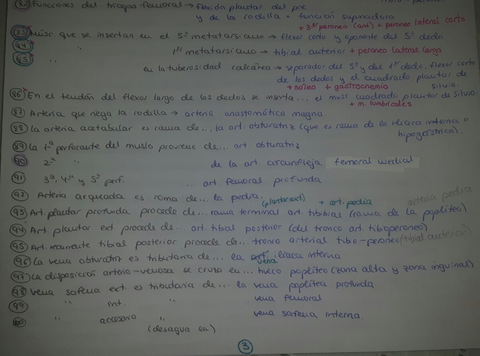 82 Funciones del tríceps femoral → flexión plantar del pie
y de la rodilla + función supinadora
+ 3er peroneo (ant) + peroneo lateral corto
83 Musc. que se insertan en el 5º metatarsiano → flexor corto y oponente del 5º dedo
84 " 1er metatarsiano → tibial anterior + peroneo lateral largo
85 " en la tuberosidad calcánea → separador del 5º y del 1er dedo, flexor corto
de los dedos y el cuadrado plantar de silvio
+ soleo + gastrocnemio
86 En el tendón del flexor largo de los dedos se inserta... el musc cuadrado plantar de silvio
+ m. lumbricales
87 Arteria que riega la rodilla → arteria anastomótica magna.
88 La arteria acetabular es rama de... la art. obturatriz (que es rama de la iliaca interna o
hipogástrica).
89 La 1ª perforante del muslo proviene de... art obturatriz
90 2ª " de la art. circunfleja femoral medial
91 3ª, 4ª y 5ª perf. " art femoral profunda
92 Arteria arqueada es rama de... la pedia.
93 Art plantar profunda procede de... rama terminal art tibial (rama de la poplítea)
94 Art plantar ext procede de... art. tibial posterior (del tronco art tibioperoneo)
95 Art recurrente tibial posterior procede de... tronco arterial tibio-peroneo/tibial anterior
96 La vena obturatriz es tributaria de... la vena iliaca interna
97 La disposición arterio-venosa se cruza en... hueco poplíteo (zona alta y zona inguinal)
98 Vena safena ext. es tributaria de... la vena poplítea profunda
99 " int. " vena femoral
100 " accesoria " vena safena interna.
(desagua en)
3